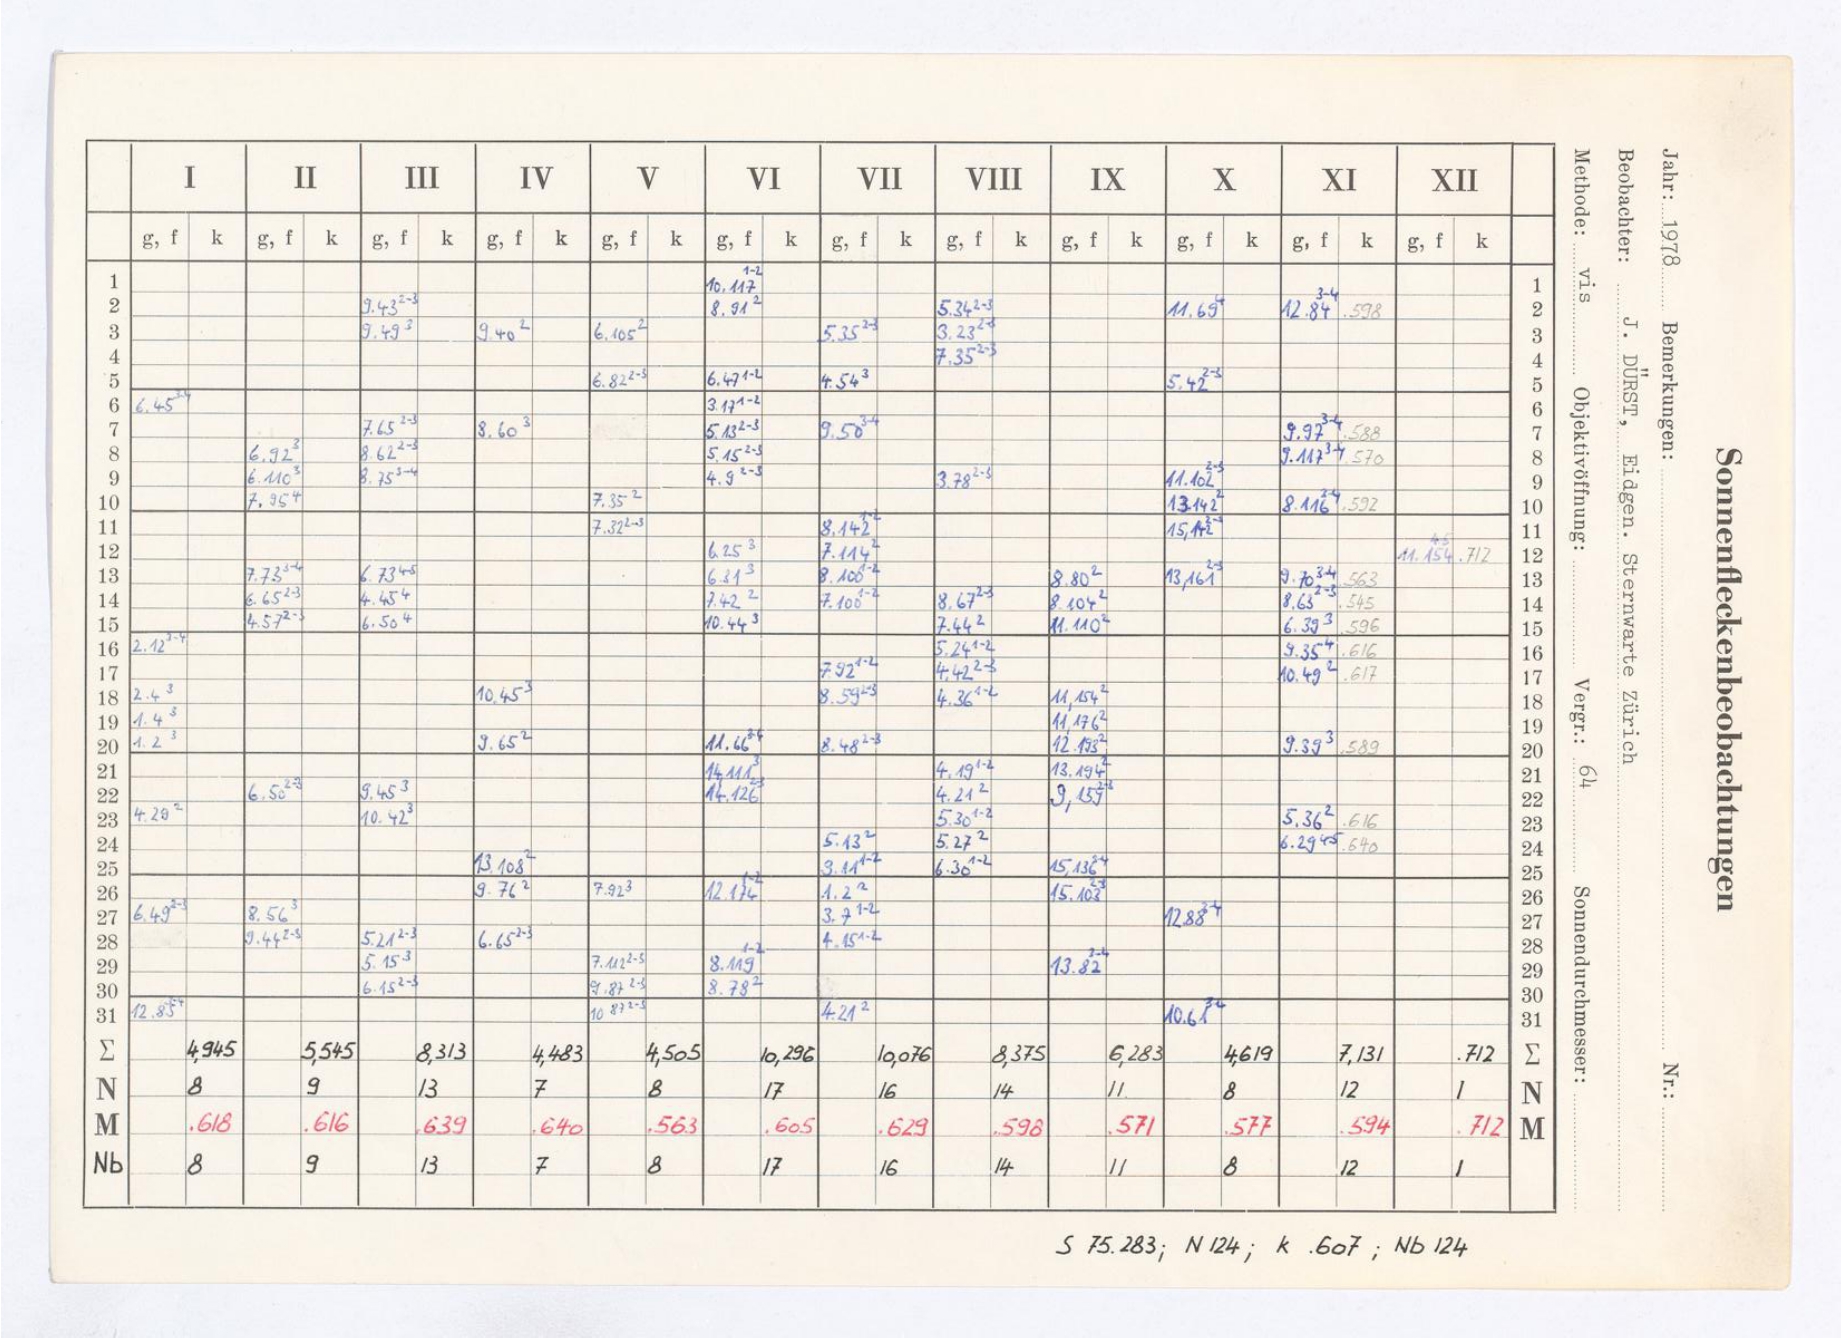 Sonnenfleckenbeobachtungen
Jahr: 1978 Bemerkungen: Nr.:
Beobachter: J. DÜRST, Eidgen. Sternwarte Zürich
Methode: vis Objektivöffnung: Vergr.: 64 Sonnendurchmesser:
I II III IV V VI VII VIII IX X XI XII
g, f k g, f k g, f k g, f k g, f k g, f k g, f k g, f k g, f k g, f k g, f k g, f k
1 10.117 1-2 1
2 9.43 2-3 8.91 2 5.34 2-3 11.69 12.84 3-4 .598 2
3 9.49 3 9.40 2 6.105 2 5.35 2-3 3.23 3
4 7.35 2-3 4
5 6.82 2-3 6.47 1-2 4.54 3 5.42 2-3 5
6 6.45 3.17 1-2 6
7 7.65 2-3 8.60 3 5.13 2-3 9.50 3-4 9.97 3-4 .588 7
8 6.92 3 8.62 2-3 5.15 2-3 9.117 3-4 .570 8
9 6.110 3 8.75 3-4 4.9 2-3 3.78 2-3 11.102 2-3 9
10 7.95 4 7.35 2 13.142 2 8.116 .592 10
11 7.32 2-3 8.142 1-2 15,142 11
12 6.25 3 7.114 2 11.154 4-5 .712 12
13 7.73 3-4 6.73 4-5 6.31 3 8.100 1-2 8.80 2 13,161 2-3 9.70 3-4 .563 13
14 6.65 2-3 4.45 4 7.42 2 7.100 1-2 8.67 2-3 8.104 2 8.63 2-3 .545 14
15 4.57 2-3 6.50 4 10.44 3 7.44 2 11.110 2 6.39 3 .596 15
16 2.12 3-4 5.24 1-2 9.35 4 .616 16
17 7.92 1-2 4.42 2-3 10.49 2 .617 17
18 2.4 3 10.45 3 8.59 2-3 4.36 1-2 11,154 2 18
19 1.4 3 11,176 2 19
20 1.2 3 9.65 2 11.66 8.48 2-3 12.193 2 9.39 3 .589 20
21 14.111 3 4.19 1-2 13.194 2 21
22 6.50 2-3 9.45 3 14.126 4.21 2 9,159 22
23 4.29 2 10.42 3 5.30 1-2 5.36 2 .616 23
24 5.13 2 5.27 2 6.29 4-5 .640 24
25 13.108 2 3.11 1-2 6.30 1-2 15,136 25
26 9.76 2 7.92 3 12.174 1-2 1.2 2 15.103 26
27 6.49 2-3 8.56 3 3.7 1-2 12.88 3-4 27
28 9.44 2-3 5.21 2-3 6.65 2-3 4.15 1-2 28
29 5.15 3 7.112 2-3 8.119 1-2 13.82 29
30 6.15 2-3 9.87 2-3 8.78 2 30
31 12.85 10.87 2-3 4.21 2 10.61 3-4 31
Σ 4,945 5,545 8,313 4,483 4,505 10,296 10,076 8,375 6,283 4,619 7,131 .712 Σ
N 8 9 13 7 8 17 16 14 11 8 12 1 N
M .618 .616 .639 .640 .563 .605 .629 .598 .571 .577 .594 .712 M
Nb 8 9 13 7 8 17 16 14 11 8 12 1
S 75.283; N 124; k .607; Nb 124